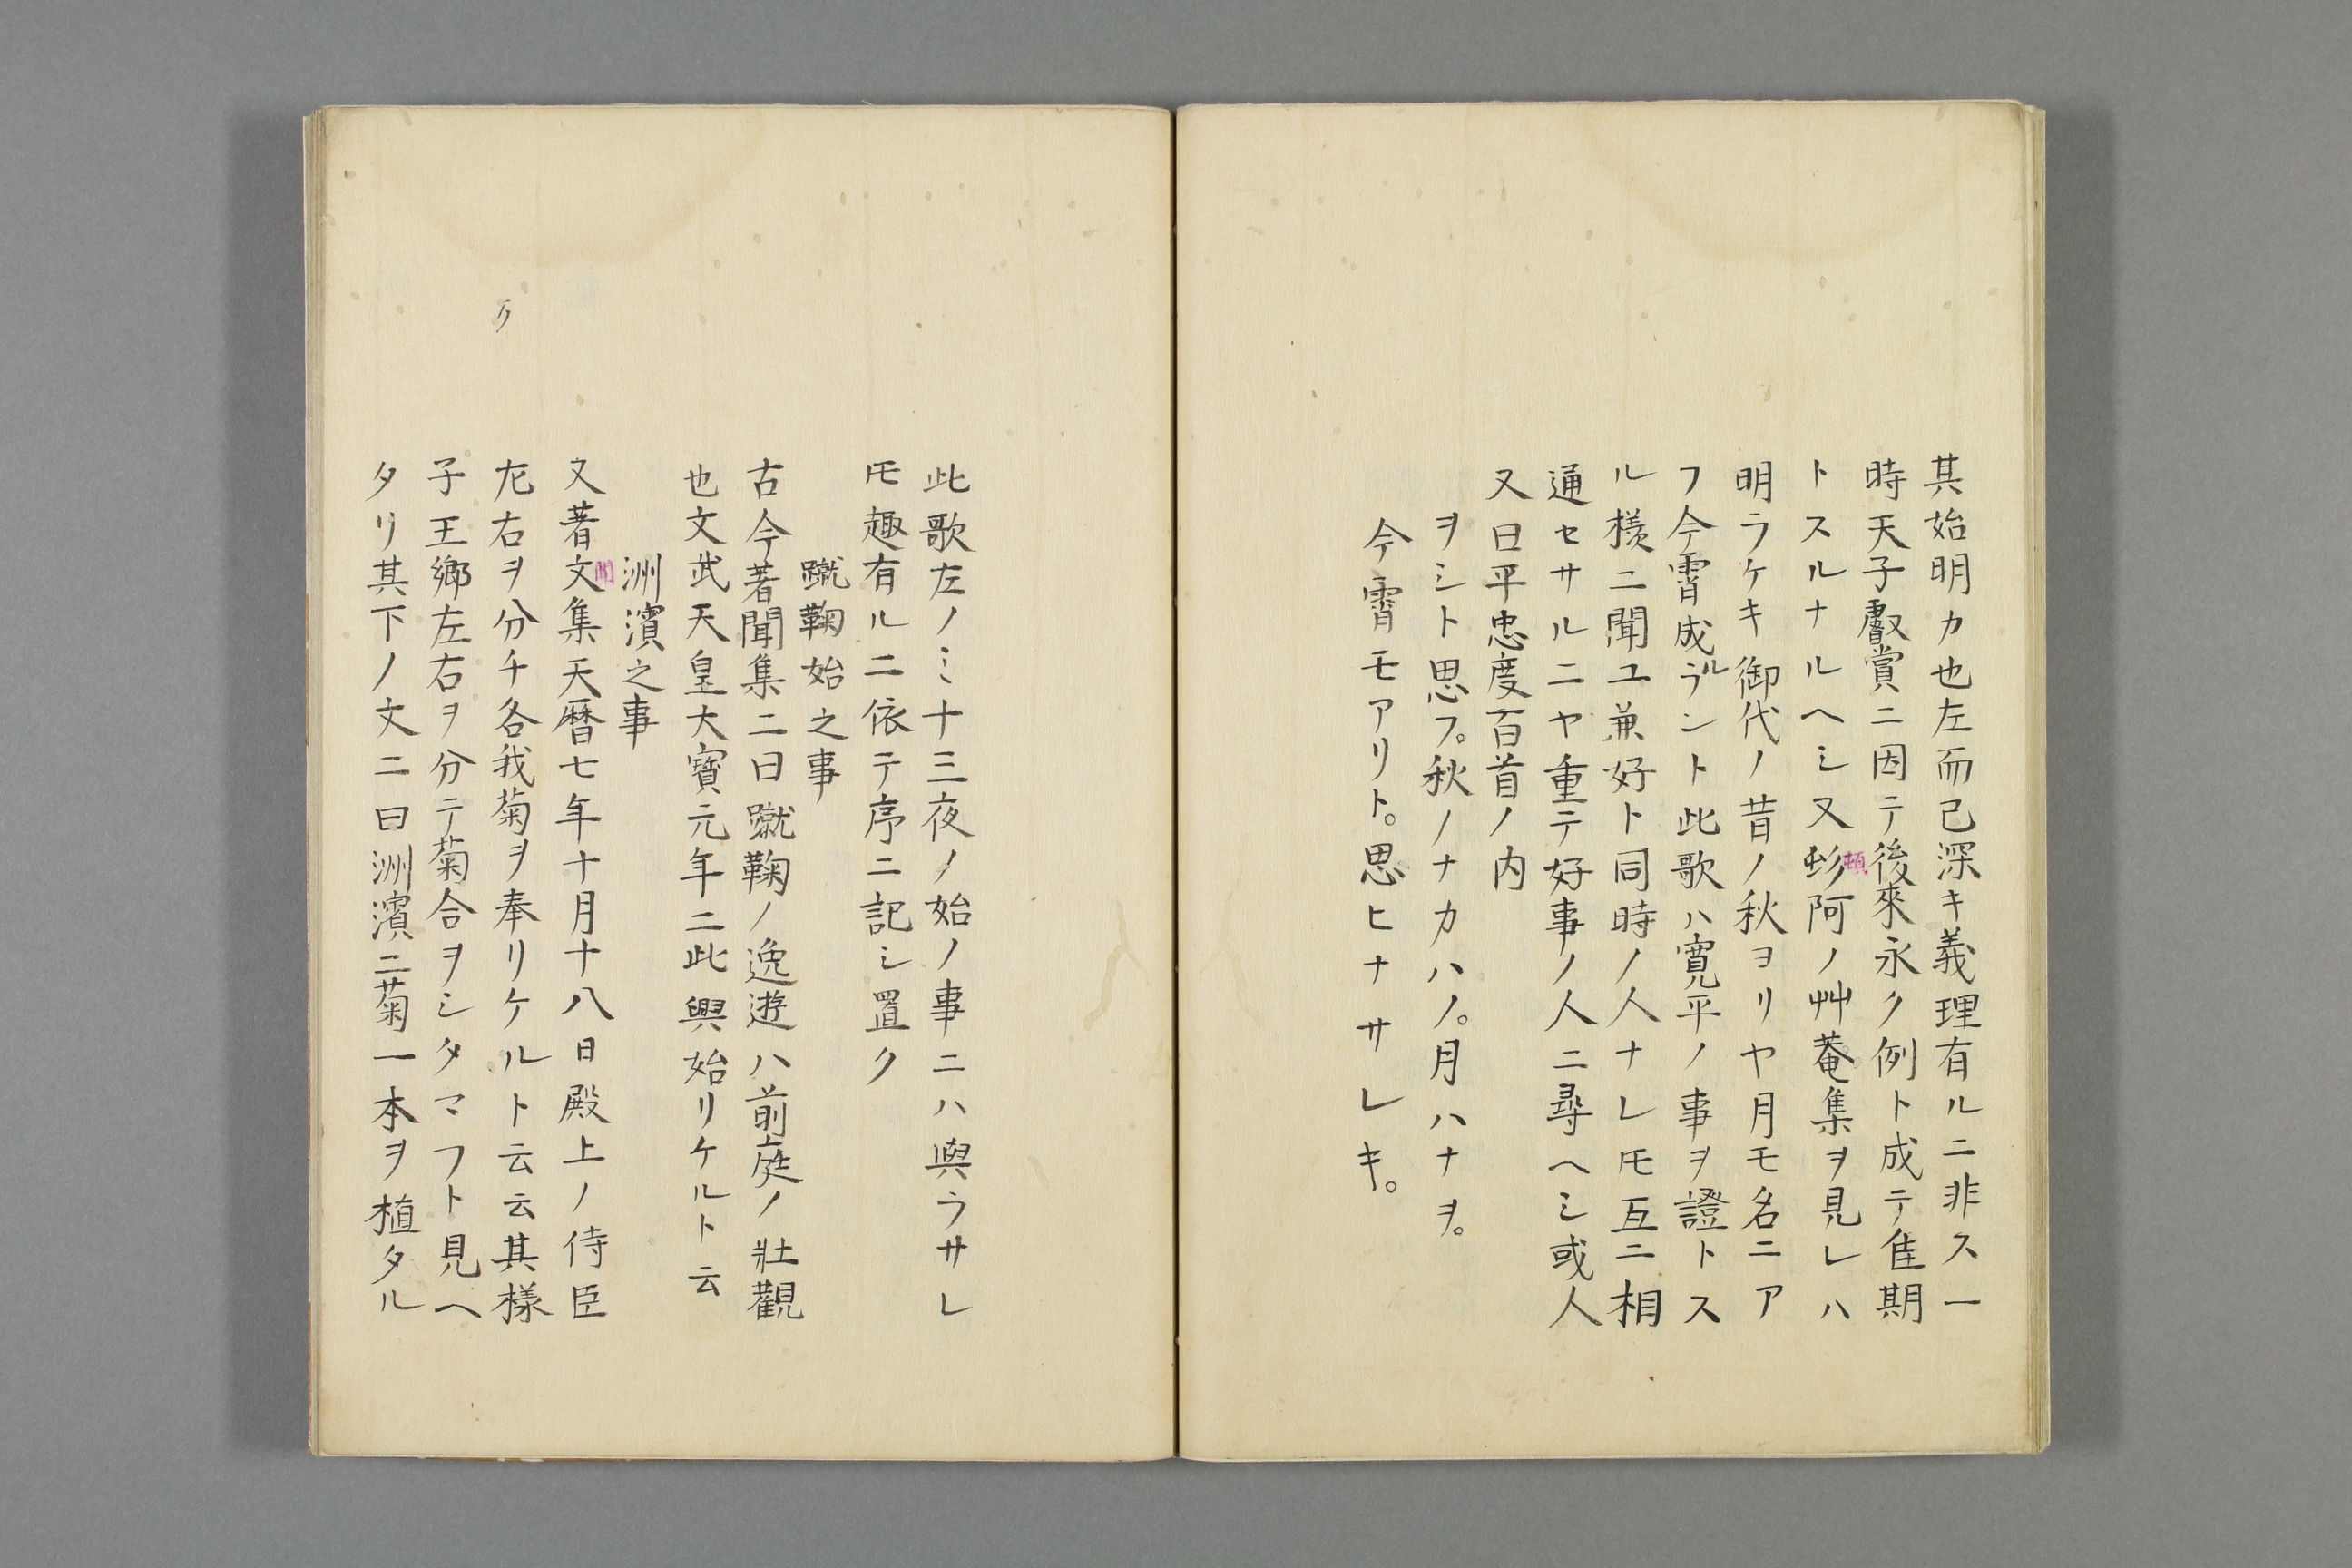 其始明カ也左而已深キ義理有ルニ非ス一
時天子叡賞ニ因テ後來永ク例ト成テ隹期
トスルナルヘシ又 阿ノ艸菴集ヲ見レハ
頓
明ラケキ御代ノ昔ノ秋ヨリヤ月モ名ニア
フ今霄成ラント此歌ハ寛平ノ事ヲ證トス
ル
ル樣ニ聞ユ兼好ト同時ノ人ナレ𪜈互ニ相
通セサルニヤ重テ好事ノ人ニ尋ヘシ或人
又曰平忠度百首ノ内
ヲシト思フ。秋ノナカハノ。月ハナヲ。
今霄モアリト。思ヒナサレキ。
此歌左ノミ十三夜ノ始ノ事ニハ與ラサレ
𪜈趣有ルニ依テ序ニ記シ置ク
蹴鞠始之事
古今著聞集ニ曰蹴鞠ノ逸遊ハ前庭ノ壯觀
也文武天皇大寶元年ニ此興始リケルト云
洲濱之事
又著文集天暦七年十月十八日殿上ノ侍臣
聞
左右ヲ分チ各我菊ヲ奉リケルト云云其樣
リ
子王郷左右ヲ分テ菊合ヲシタマフト見ヘ
タリ其下ノ文ニ曰洲濱ニ菊一本ヲ植タル